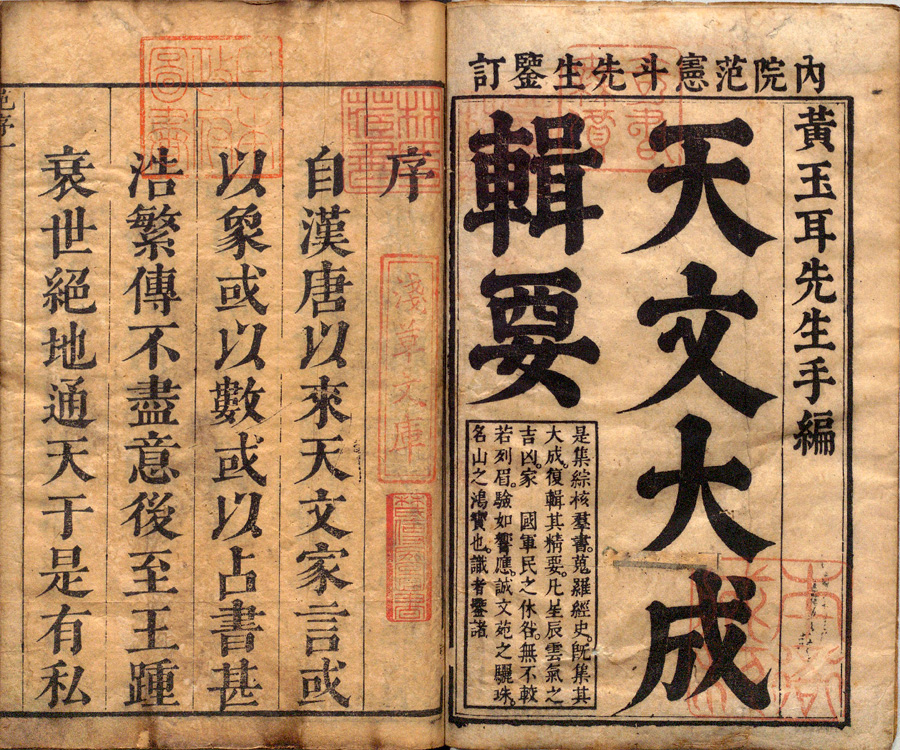 內院范憲斗先生鑒訂
黃玉耳先生手編
天文大成
輯要
是集綜核羣書。蒐羅經史。既集其
大成。復輯其精要。凡星辰雲氣之
吉凶。家　國軍民之休咎。無不較
若列眉。驗如響應。誠文苑之驪珠。
名山之鴻寶也。識者鑒諸
序
自漢唐以來天文家言或
以象或以數或以占書甚
浩繁傳不盡意後至王踵
衰世絕地通天于是有私
淺草文庫